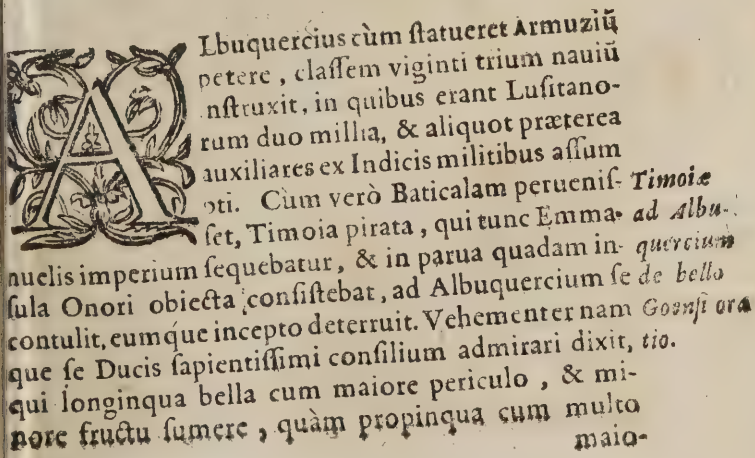 ALbuquercius cùm ſtatueret Armuziũ
petere, claſſem viginti trium nauiũ
nſtruxit, in quibus erant Luſitano-
rum duo millia, & aliquot præterea
auxiliares ex Indicis militibus aſſum
pti. Cùm verò Baticalam perueniſ-
ſet, Timoia pirata, qui tunc Emma-
nuelis imperium ſequebatur, & in parua quadam in-
ſula Onori obiecta conſiſtebat, ad Albuquercium ſe
contulit, eumq́ue incepto deterruit. Vehementer nam
que ſe Ducis ſapientiſſimi conſilium admirari dixit,
qui longinqua bella cum maiore periculo, & mi-
nore fructu ſumere, quàm propinqua cum multo
maio-
Timoiæ
ad Albu-
quercium
de bello
Goenſi ora
tio.